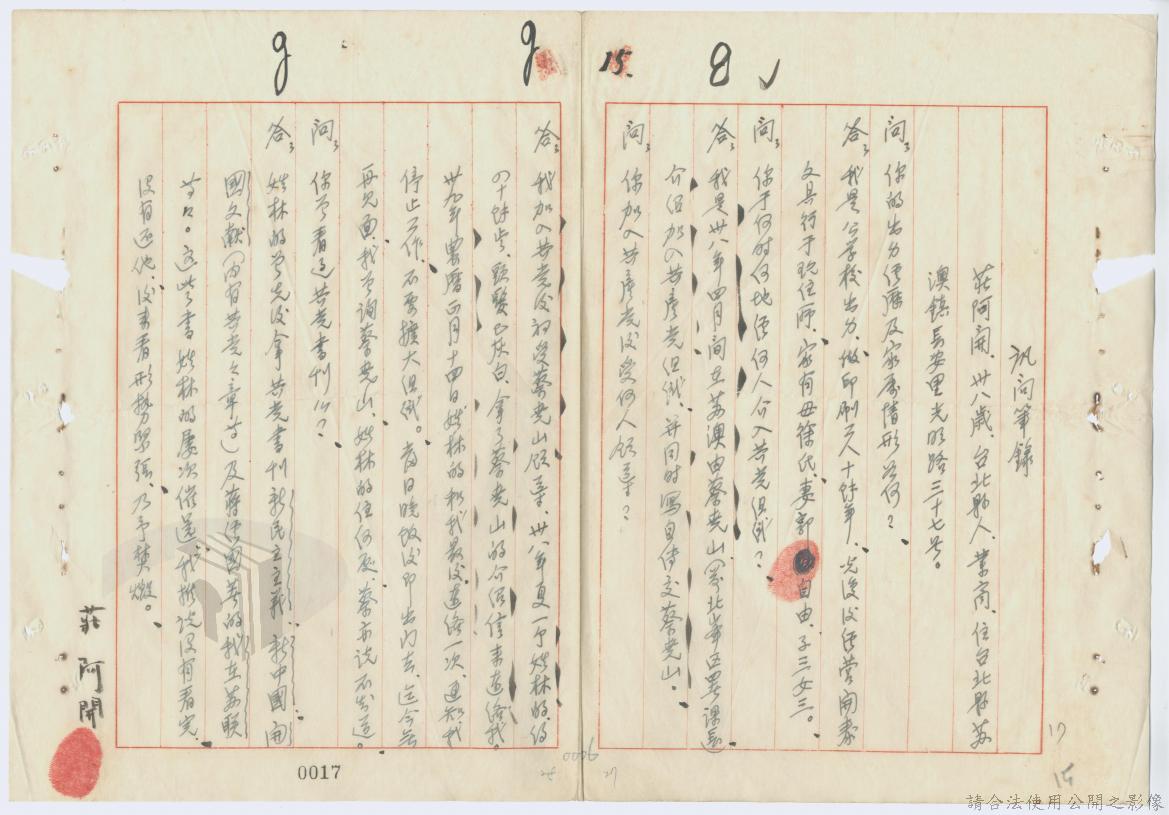 訊問筆錄
莊阿開、卅八歲、台北縣人、業商、住台北縣蘇
澳鎮長安里光明路三十七号。
問：你的出身經歷及家属情形若何？
答：我是公学校出身、做印刷工人十餘年、光復後經营開泰
文具行于現住所、家有母徐氏、妻郭 自由、子三女三。
問：你于何时何地經何人介入共党組織？
答：我是卅八年四月間在蘇澳由蔡尭山（
介紹加入共産党組織、并同时寫自传交蔡尭山。
問：你加入共産党後受何人領導？
答：我加入共党後初受蔡尭山領導。卅八年夏一个姓林的、約
四十餘歲、頭髮已灰白、拿了蔡尭山的介紹信来連絡我。
卅九年農曆正月十四日姓林的和我最後連絡一次、通知我
停止工作、不要擴大組織。當日晚飯後即出门去、迄今無
再見面、我曾詢蔡尭山、姓林的住何處、蔡亦说不知道。
問：你曾看过共党書刊么？
答：姓林的曾先後拿共党書刊新民主主義、新中國、開
國文献（内有共党之章
等々。这些書姓林的屡次催还、我推说没有看完、
没有还他、後来看形勢緊張、乃予焚燬。
莊阿開
0017
0006
15.
17
15
請合法使用公開之影像